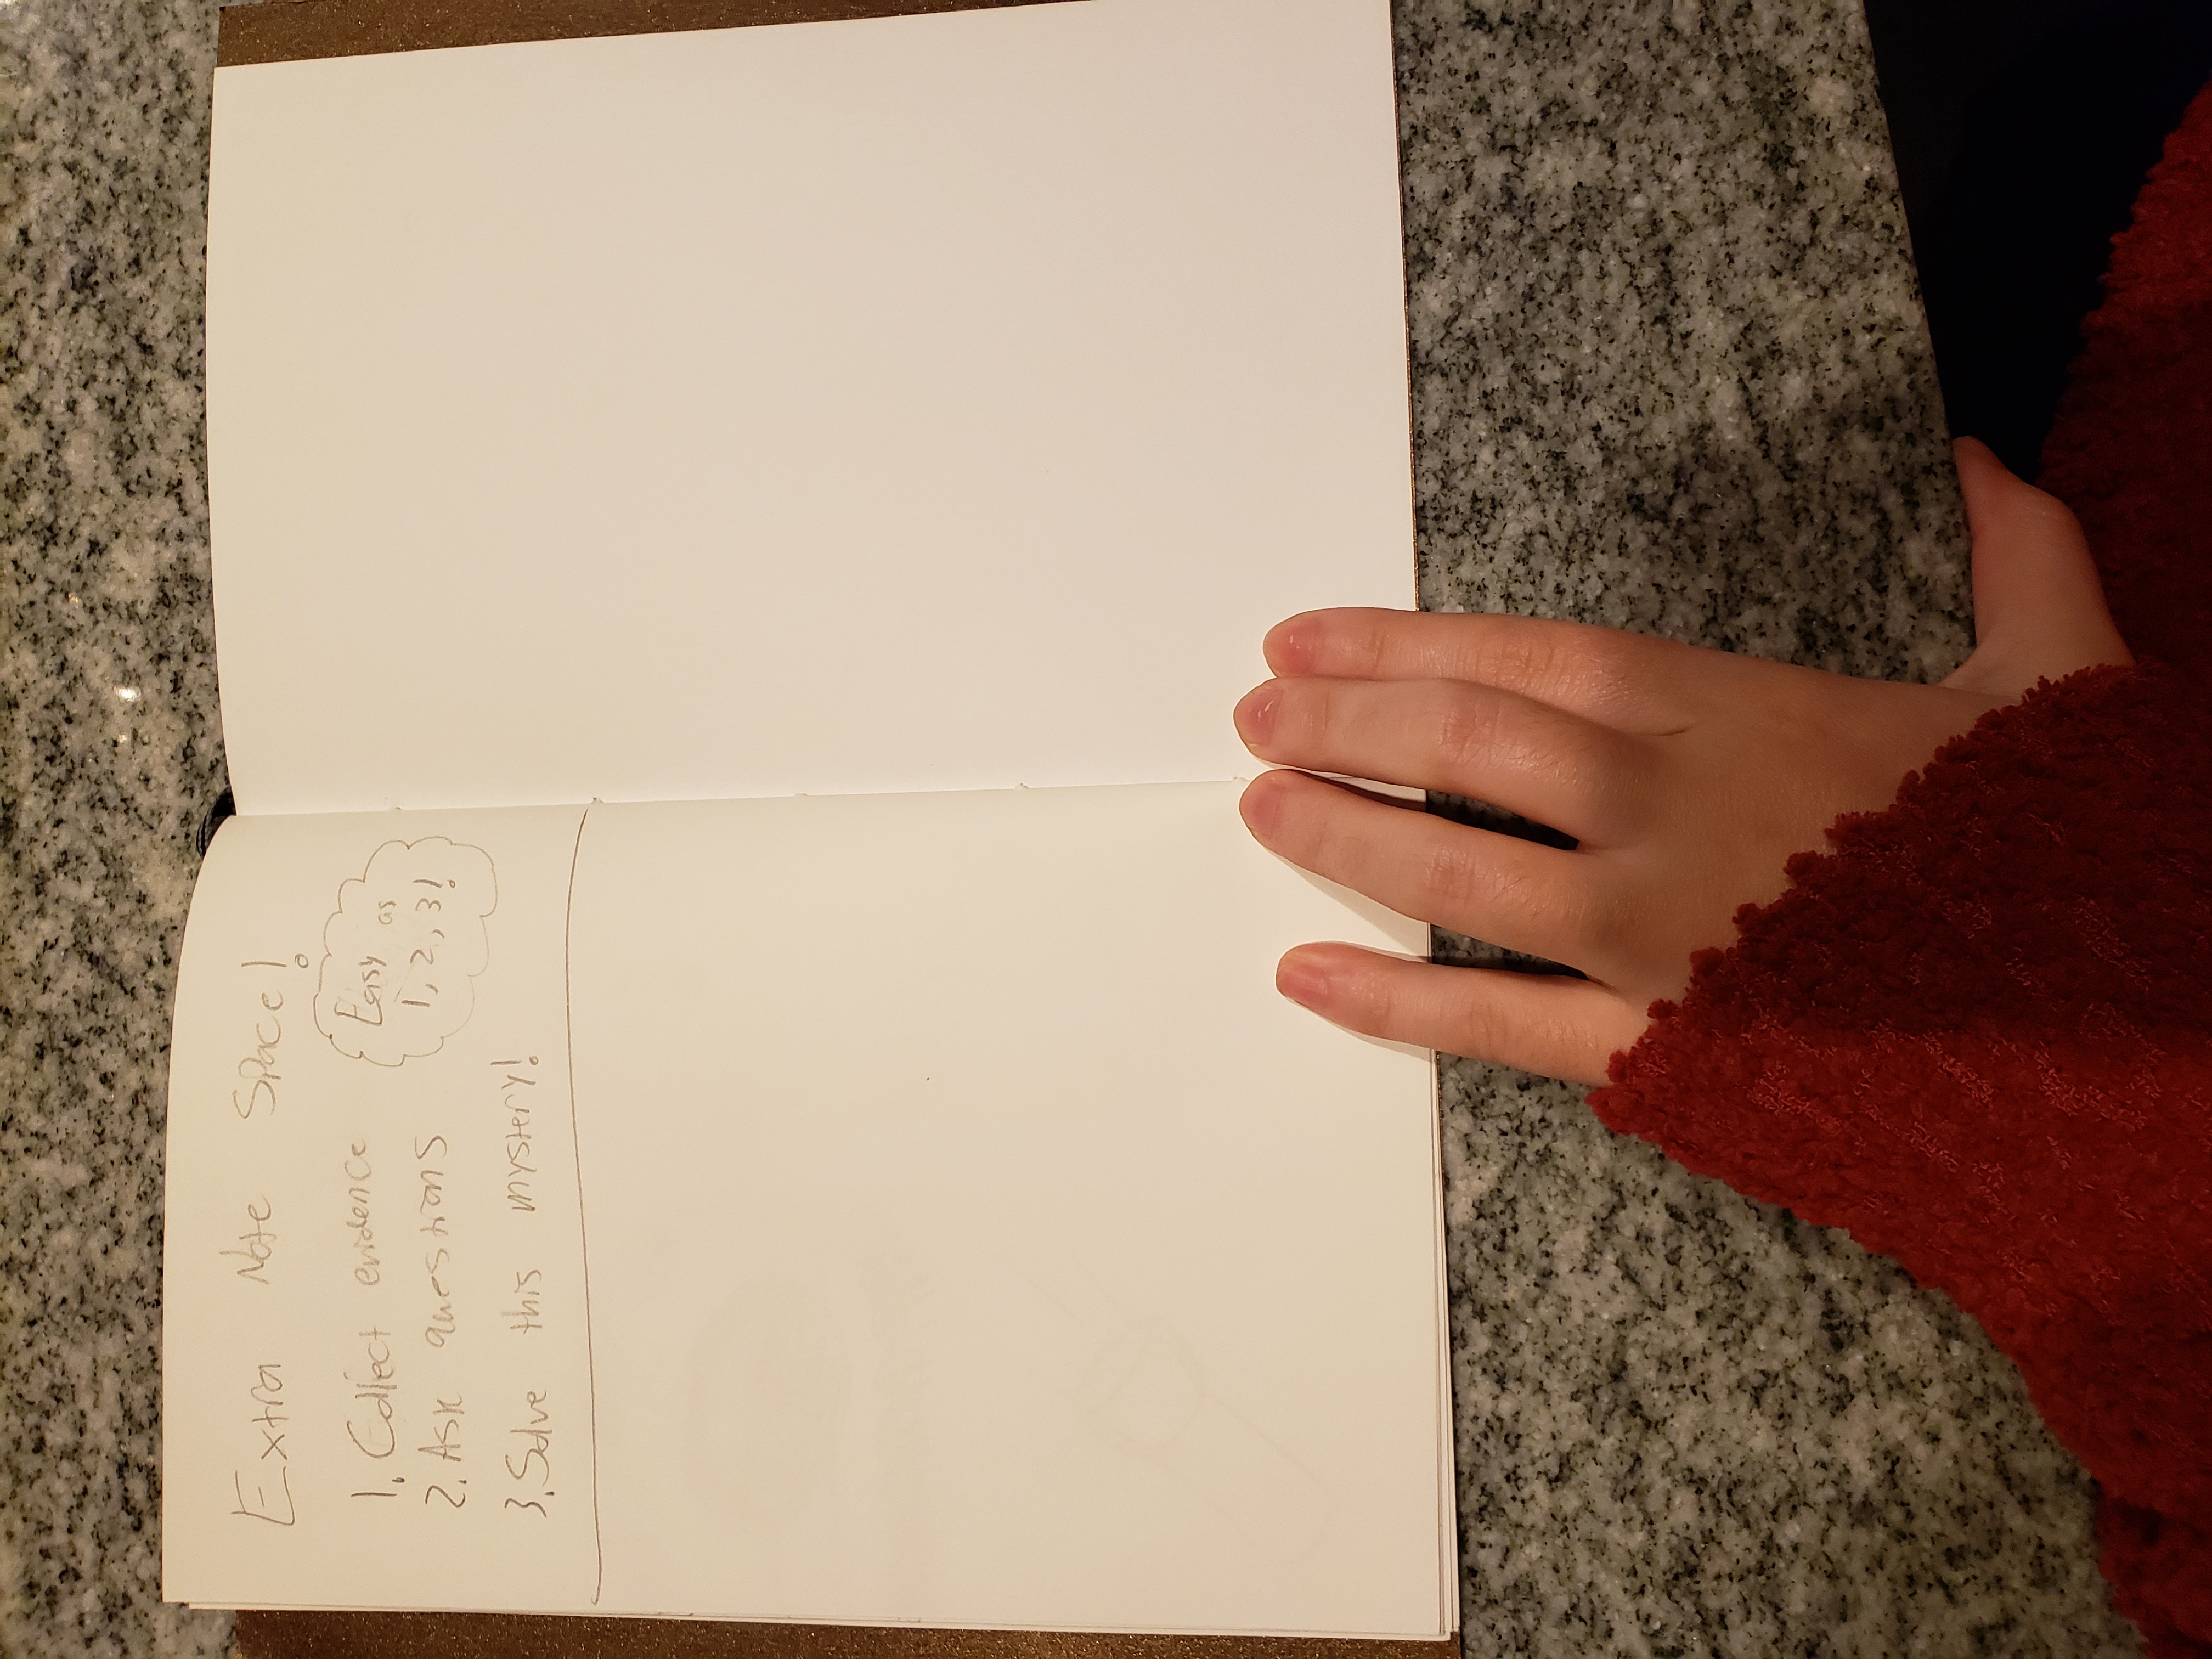 Extra Note Space!
1. Collect evidence
2. Ask questions
3. Solve this mystery!
Easy as
1, 2, 3!